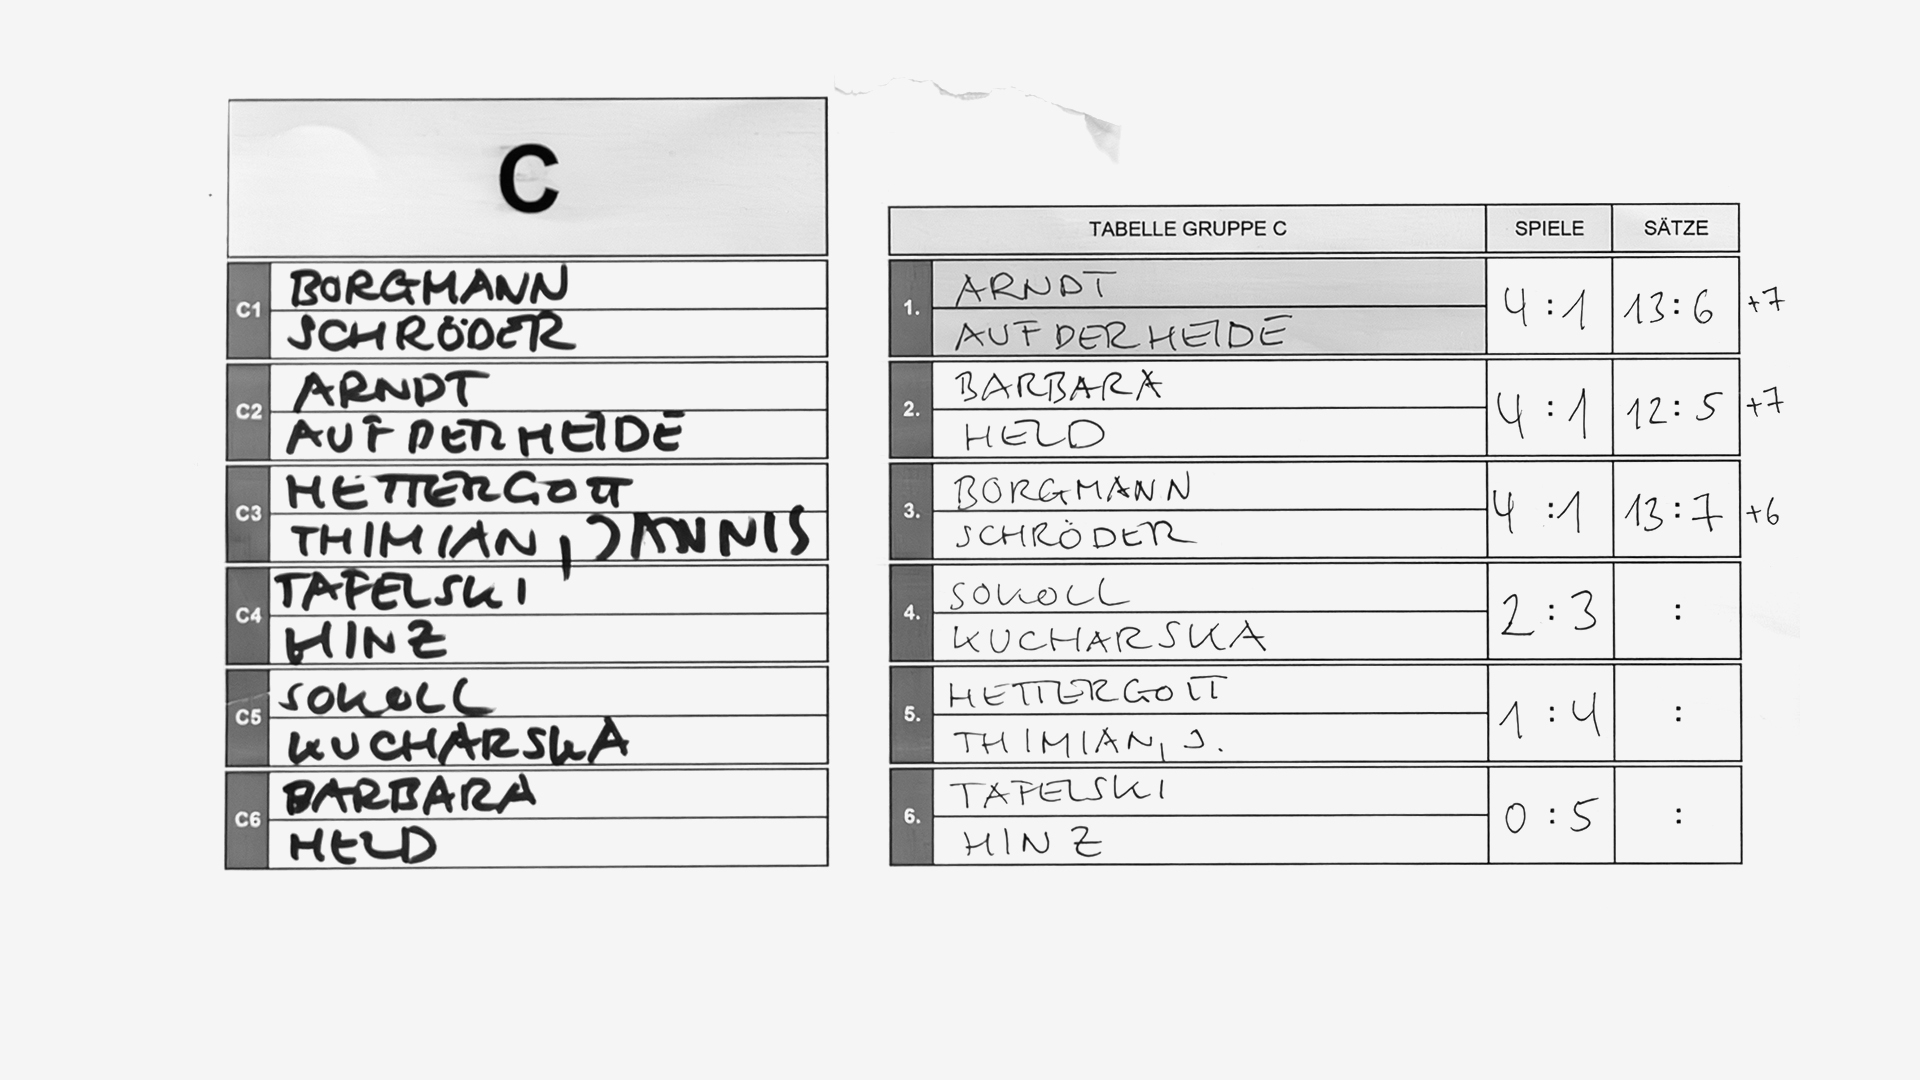 C
C1
BORGMANN
SCHRÖDER
C2
ARNDT
AUF DER HEIDE
C3
HETTERGOTT
THIMIAN, JANNIS
C4
TAFELSKI
HINZ
C5
SOKOLL
KUCHARSKA
C6
BARBARA
HELD
TABELLE GRUPPE C SPIELE SÄTZE
1.
ARNDT
AUF DER HEIDE
4 : 1 13 : 6 +7
2.
BARBARA
HELD
4 : 1 12 : 5 +7
3.
BORGMANN
SCHRÖDER
4 : 1 13 : 7 +6
4.
SOKOLL
KUCHARSKA
2 : 3 :
5.
HETTERGOTT
THIMIAN, J.
1 : 4 :
6.
TAFELSKI
HINZ
0 : 5 :